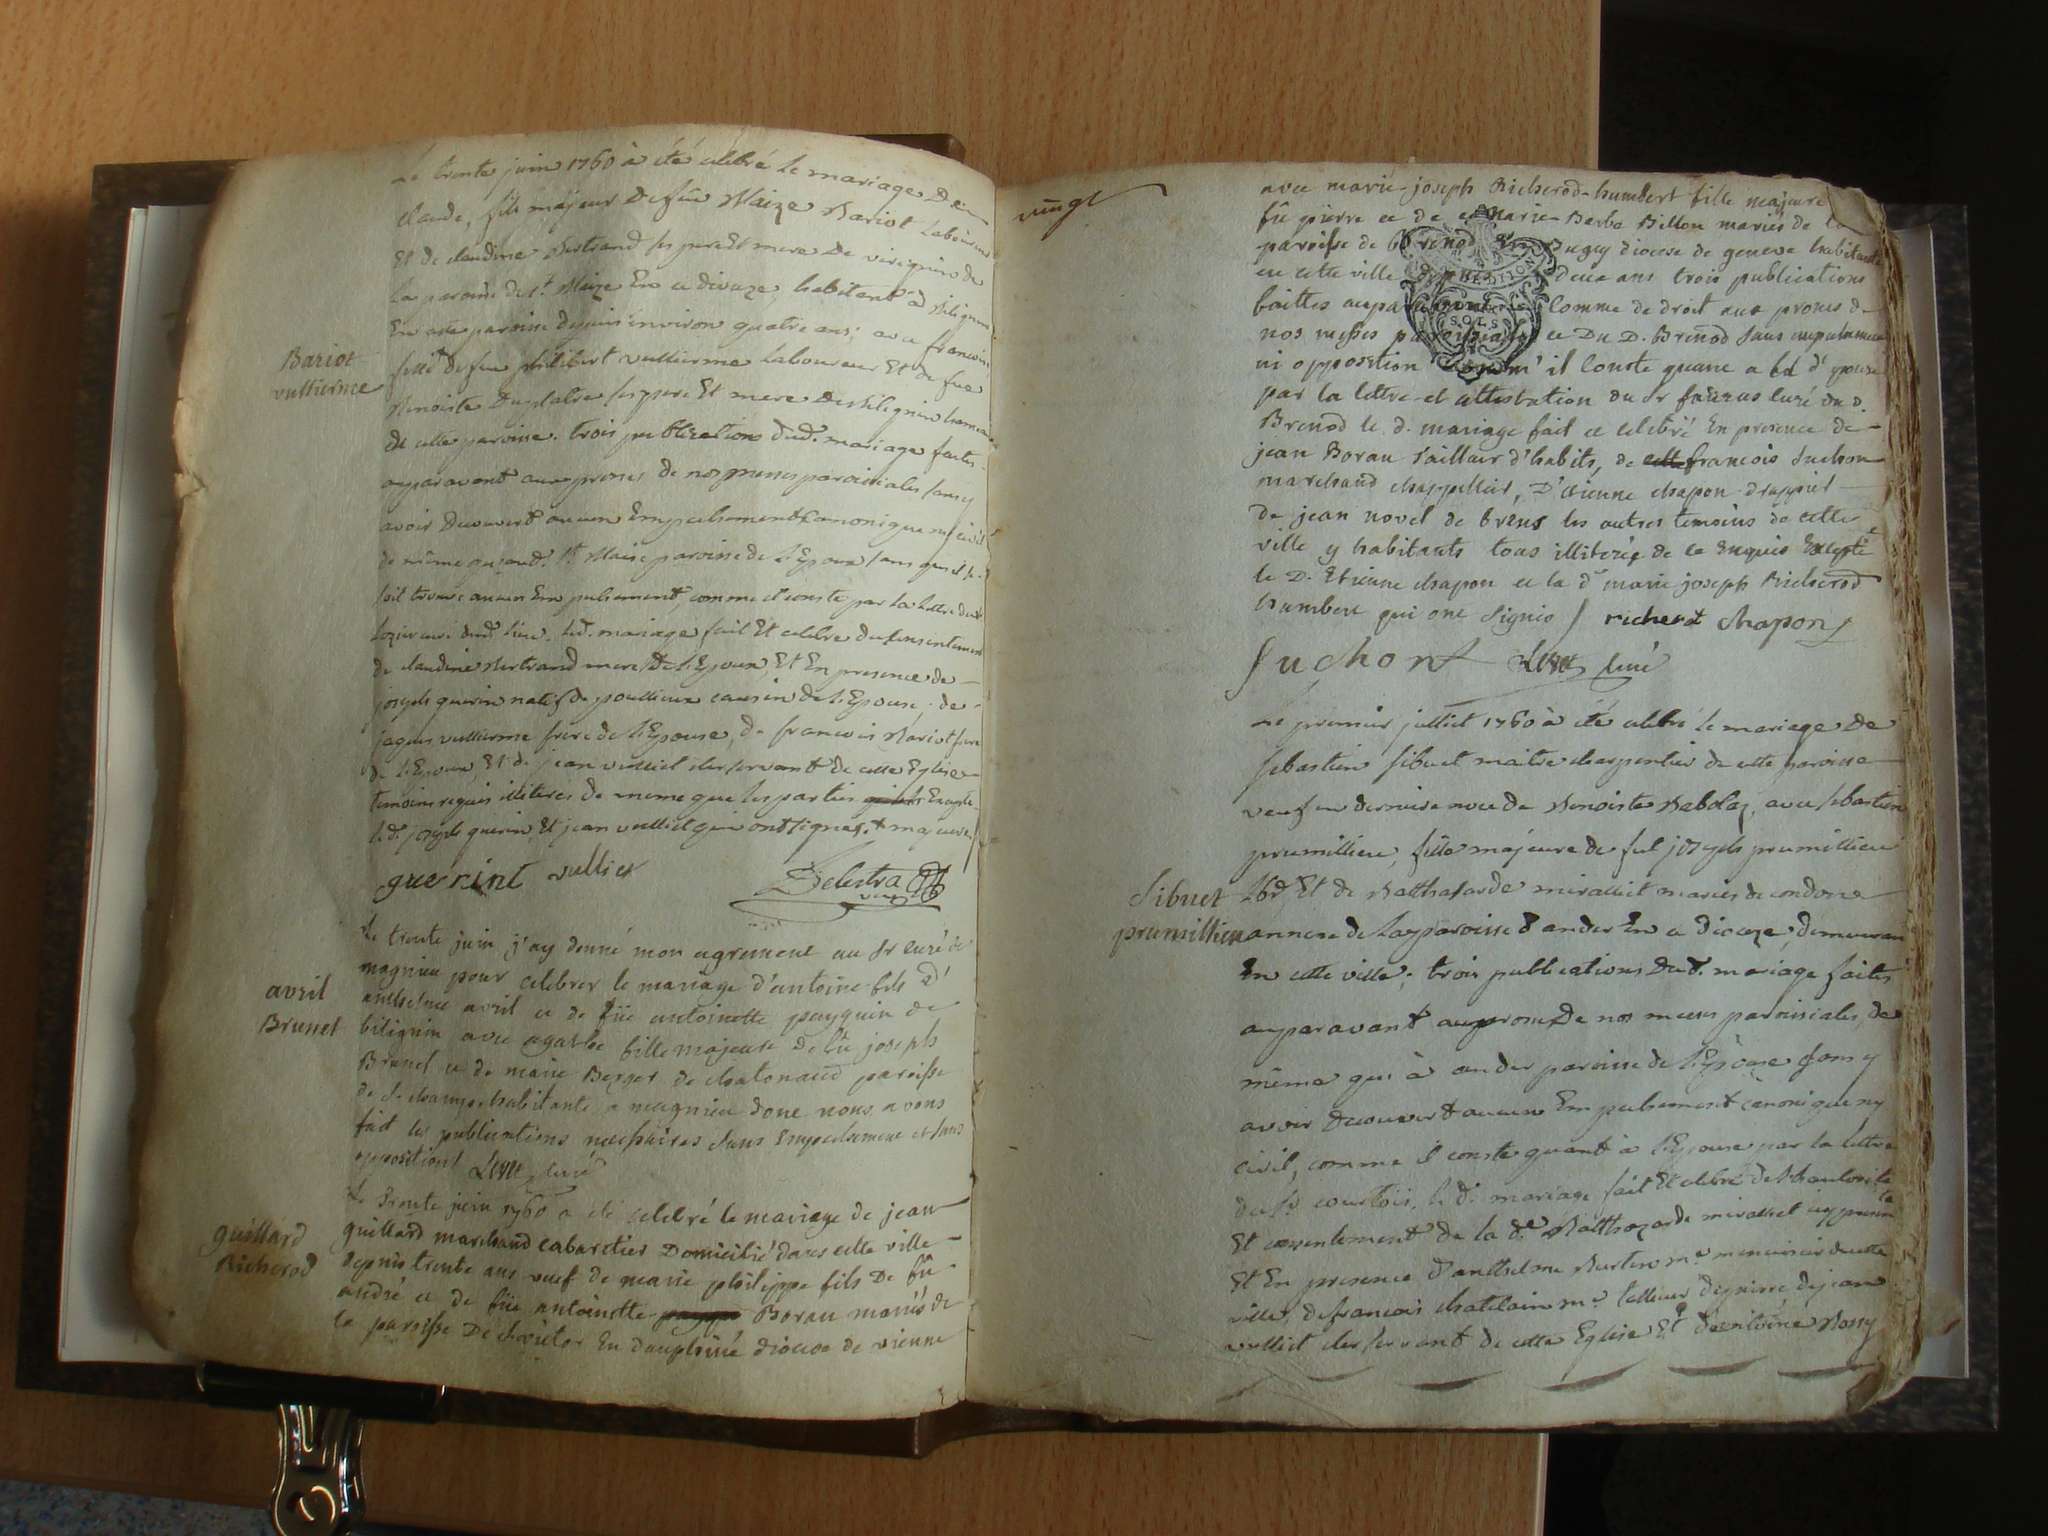 Le trente juin 1760 à été celebré le mariage De
claude, fils majeur De feu Blaize Bariot laboureur
Et de claudine Bertrand ses pere Et mere De virignin de
la paroisse de st. Blaize En ce dioceze, habitant à
En cette paroisse depuis environ quatre ans; avec francoise
Bariot
vullierme
fille De feu philibert vullierme laboureur Et de fue
Benoiste ses pere Et mere hameau
de cette paroisse. trois publications dud. mariage faites
auparavant aux prones de nos messes paroissiales sans y
avoir Decouvert aucun Empechement canonique ny civil
de même qu'aud. st. Blaise paroisse de l'Epoux sans qu'il se
soit trouvé aucun Empechement, comme il conste par la lettre du sr
curé dud. lieu. led. mariage fait Et celebré du consentement
de claudine Bertrand mere De l'Epoux, Et En presence de
joseph guerin natif de poullieux cousin De l'Epouse, de
jaques vullierme frere de l'Epouse, de francois Bariot frere
de l'Epoux, Et de jean vulliet clerc servant De cette Eglise
temoins requis illiteres de meme que les parties Excepté
le d. joseph guerin, Et jean vulliet qui ont signé
guerint vulliet Delestra
vic
Le trente juin j'ay donné mon agrement au sr curé de
magnieu pour celebrer le mariage d'antoine fils d'
avril
Brunet
anthelme avril et de fûe antoinette de
bilignin avec agathe fille majeure de fû joseph
Brunet et de marie Berger de chatonaud paroisse
de st champ habitante a magnieu dont nous avons
fait les publications necessaires sans Empechement et sans
opposition curé
Le Trente juin 1760 a été celebré le mariage de jean
guillard
Richerod
guillard marchand cabaretier Domicilié dans cette ville
depuis trente ans veuf de marie philippe fils De fû
andré et de fûe antoinette Borau mariés de
la paroisse De En dauphiné diocese de vienne
vingt
avec marie-joseph Richerod-humbert fille majeure
fû pierre et de Marie Berbe Billon mariés de la
paroisse de Brenod En Bugey diocese de geneve habitante
en cette ville deux ans trois publications
faittes auparavant comme de droit aux prones de
nos messes paroissiales et Du D. Brenod sans empechement
ni opposition comm' il conste quant a la d' epouse
par la lettre et attestation du sr curé du d.
Brenod le d. mariage fait et celebré En presence de
jean Borau Tailleur d'habits, de francois Suchon
marchand chappellier, D'étienne chapon drappier
de jean novel de brens les autres temoins de cette
ville y habitants tous illiterés de ce Enquis Excepté
le D. Etienne chapon et la de marie joseph Richerod
humbert qui ont signés / richerot Chapon
Suchont curé
Le premier juillet 1760 à été celebré le mariage De
sebastien sibuet maitre charpentier de cette paroisse
veuf en derniere noce de Benoiste avec sebastienne
prumillieu, fille majeure de feu joseph prumillieu
Sibuet
prumillieu
Et de Balthasarde miraillet mariés de condon
annexe de la paroisse d'ander En ce dioceze, demeurant
En cette ville; trois publications Dud. mariage faites
auparavant aux prones De nos messes paroissiales, de
même qu'à ander paroisse de l'Epouse sans y
avoir Decouvert aucun Empechement canonique ny
civil, comme il conste quant à l'Epouse par la lettre
du sr courtois, le d. mariage fait Et celebré de l'authorité
Et consentement de la de Balthazarde miraillet icy presente
Et En presence d'anthelme Burtin me menuisier de cette
ville, de francois chatelain me tailleur de pierre, de jean
vulliet clerc servant de cette Eglise Et d'antoine